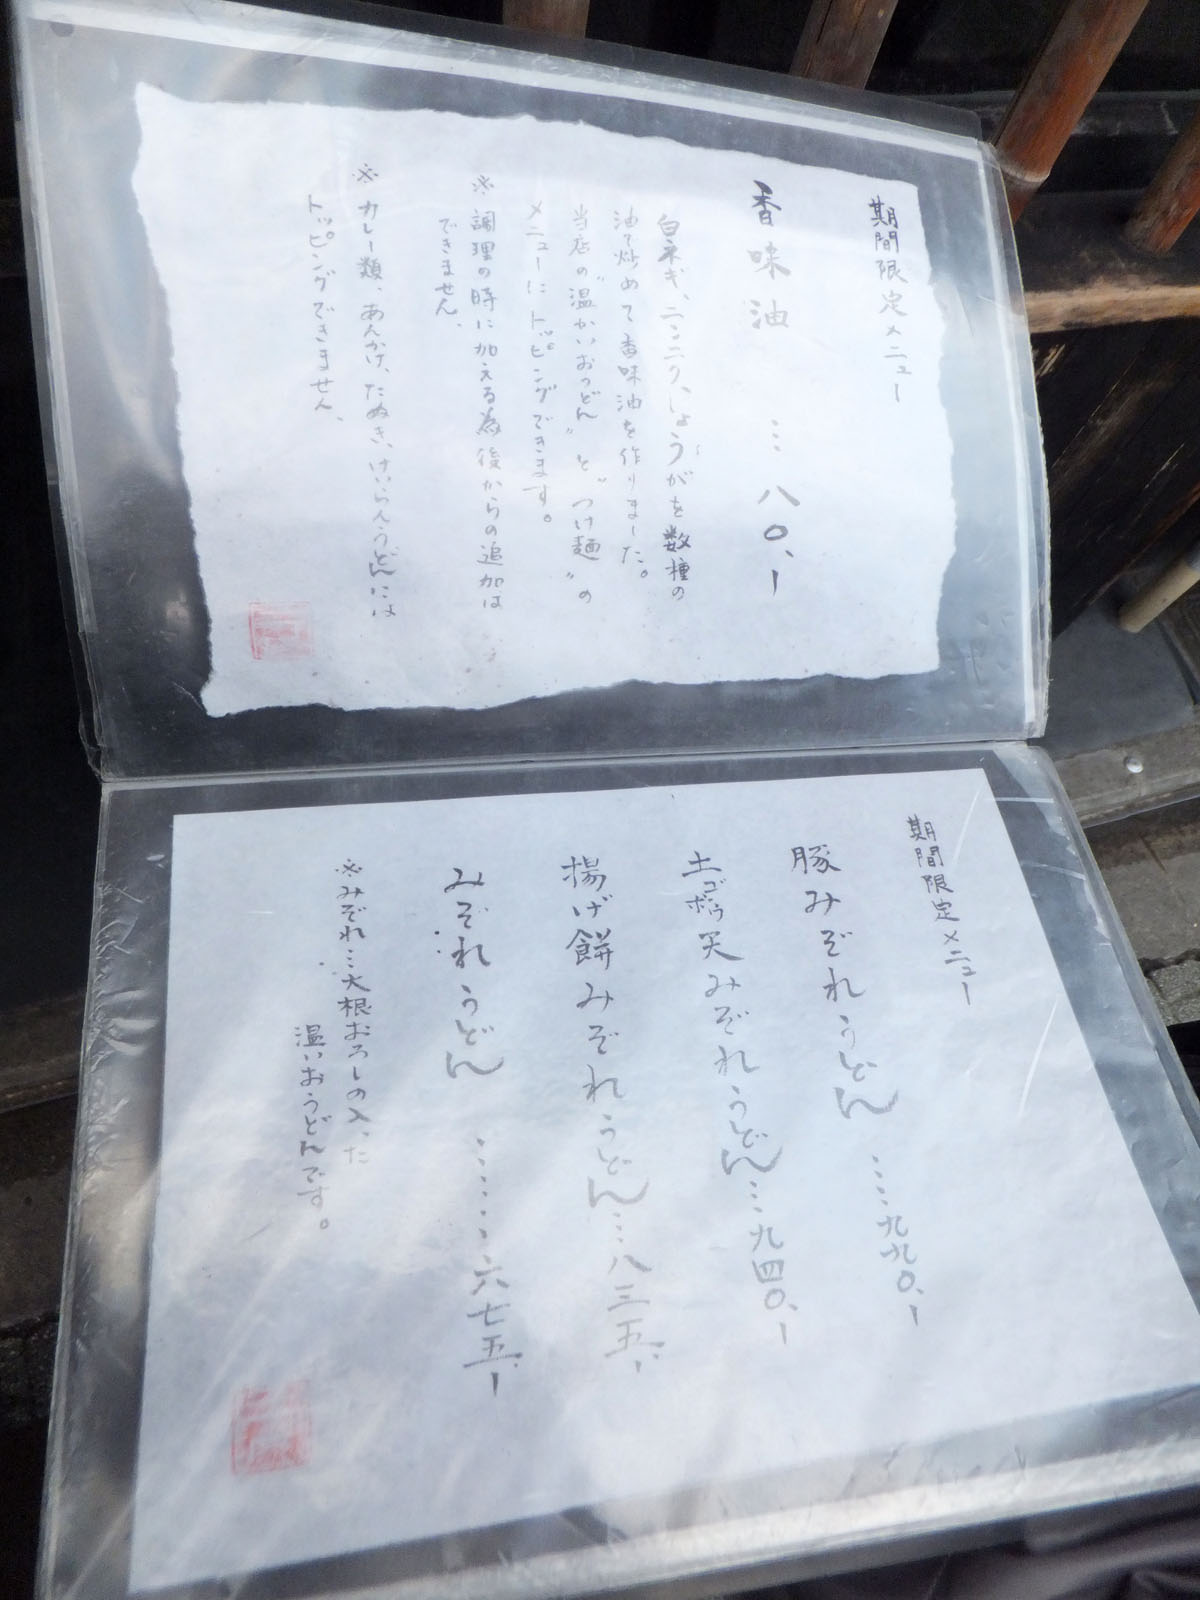 期間限定メニュー
香味油 … 八〇、ー
白ネギ、ニンニク、しょうがを数種の
油で炒めて香味油を作りました。
当店の"温かいおうどん"と"つけ麺"の
メニューにトッピングできます。
※調理の時に加える為後からの追加は
できません、
※カレー類、あんかけ、たぬき、けいらんうどんには
トッピングできません、
期間限定メニュー
豚みぞれうどん ……九九〇、ー
土ゴボウ天みぞれうどん…九四〇、ー
揚げ餅みぞれうどん…八三五、ー
みぞれうどん ………六七五、ー
※みぞれ…大根おろしの入った
温いおうどんです。